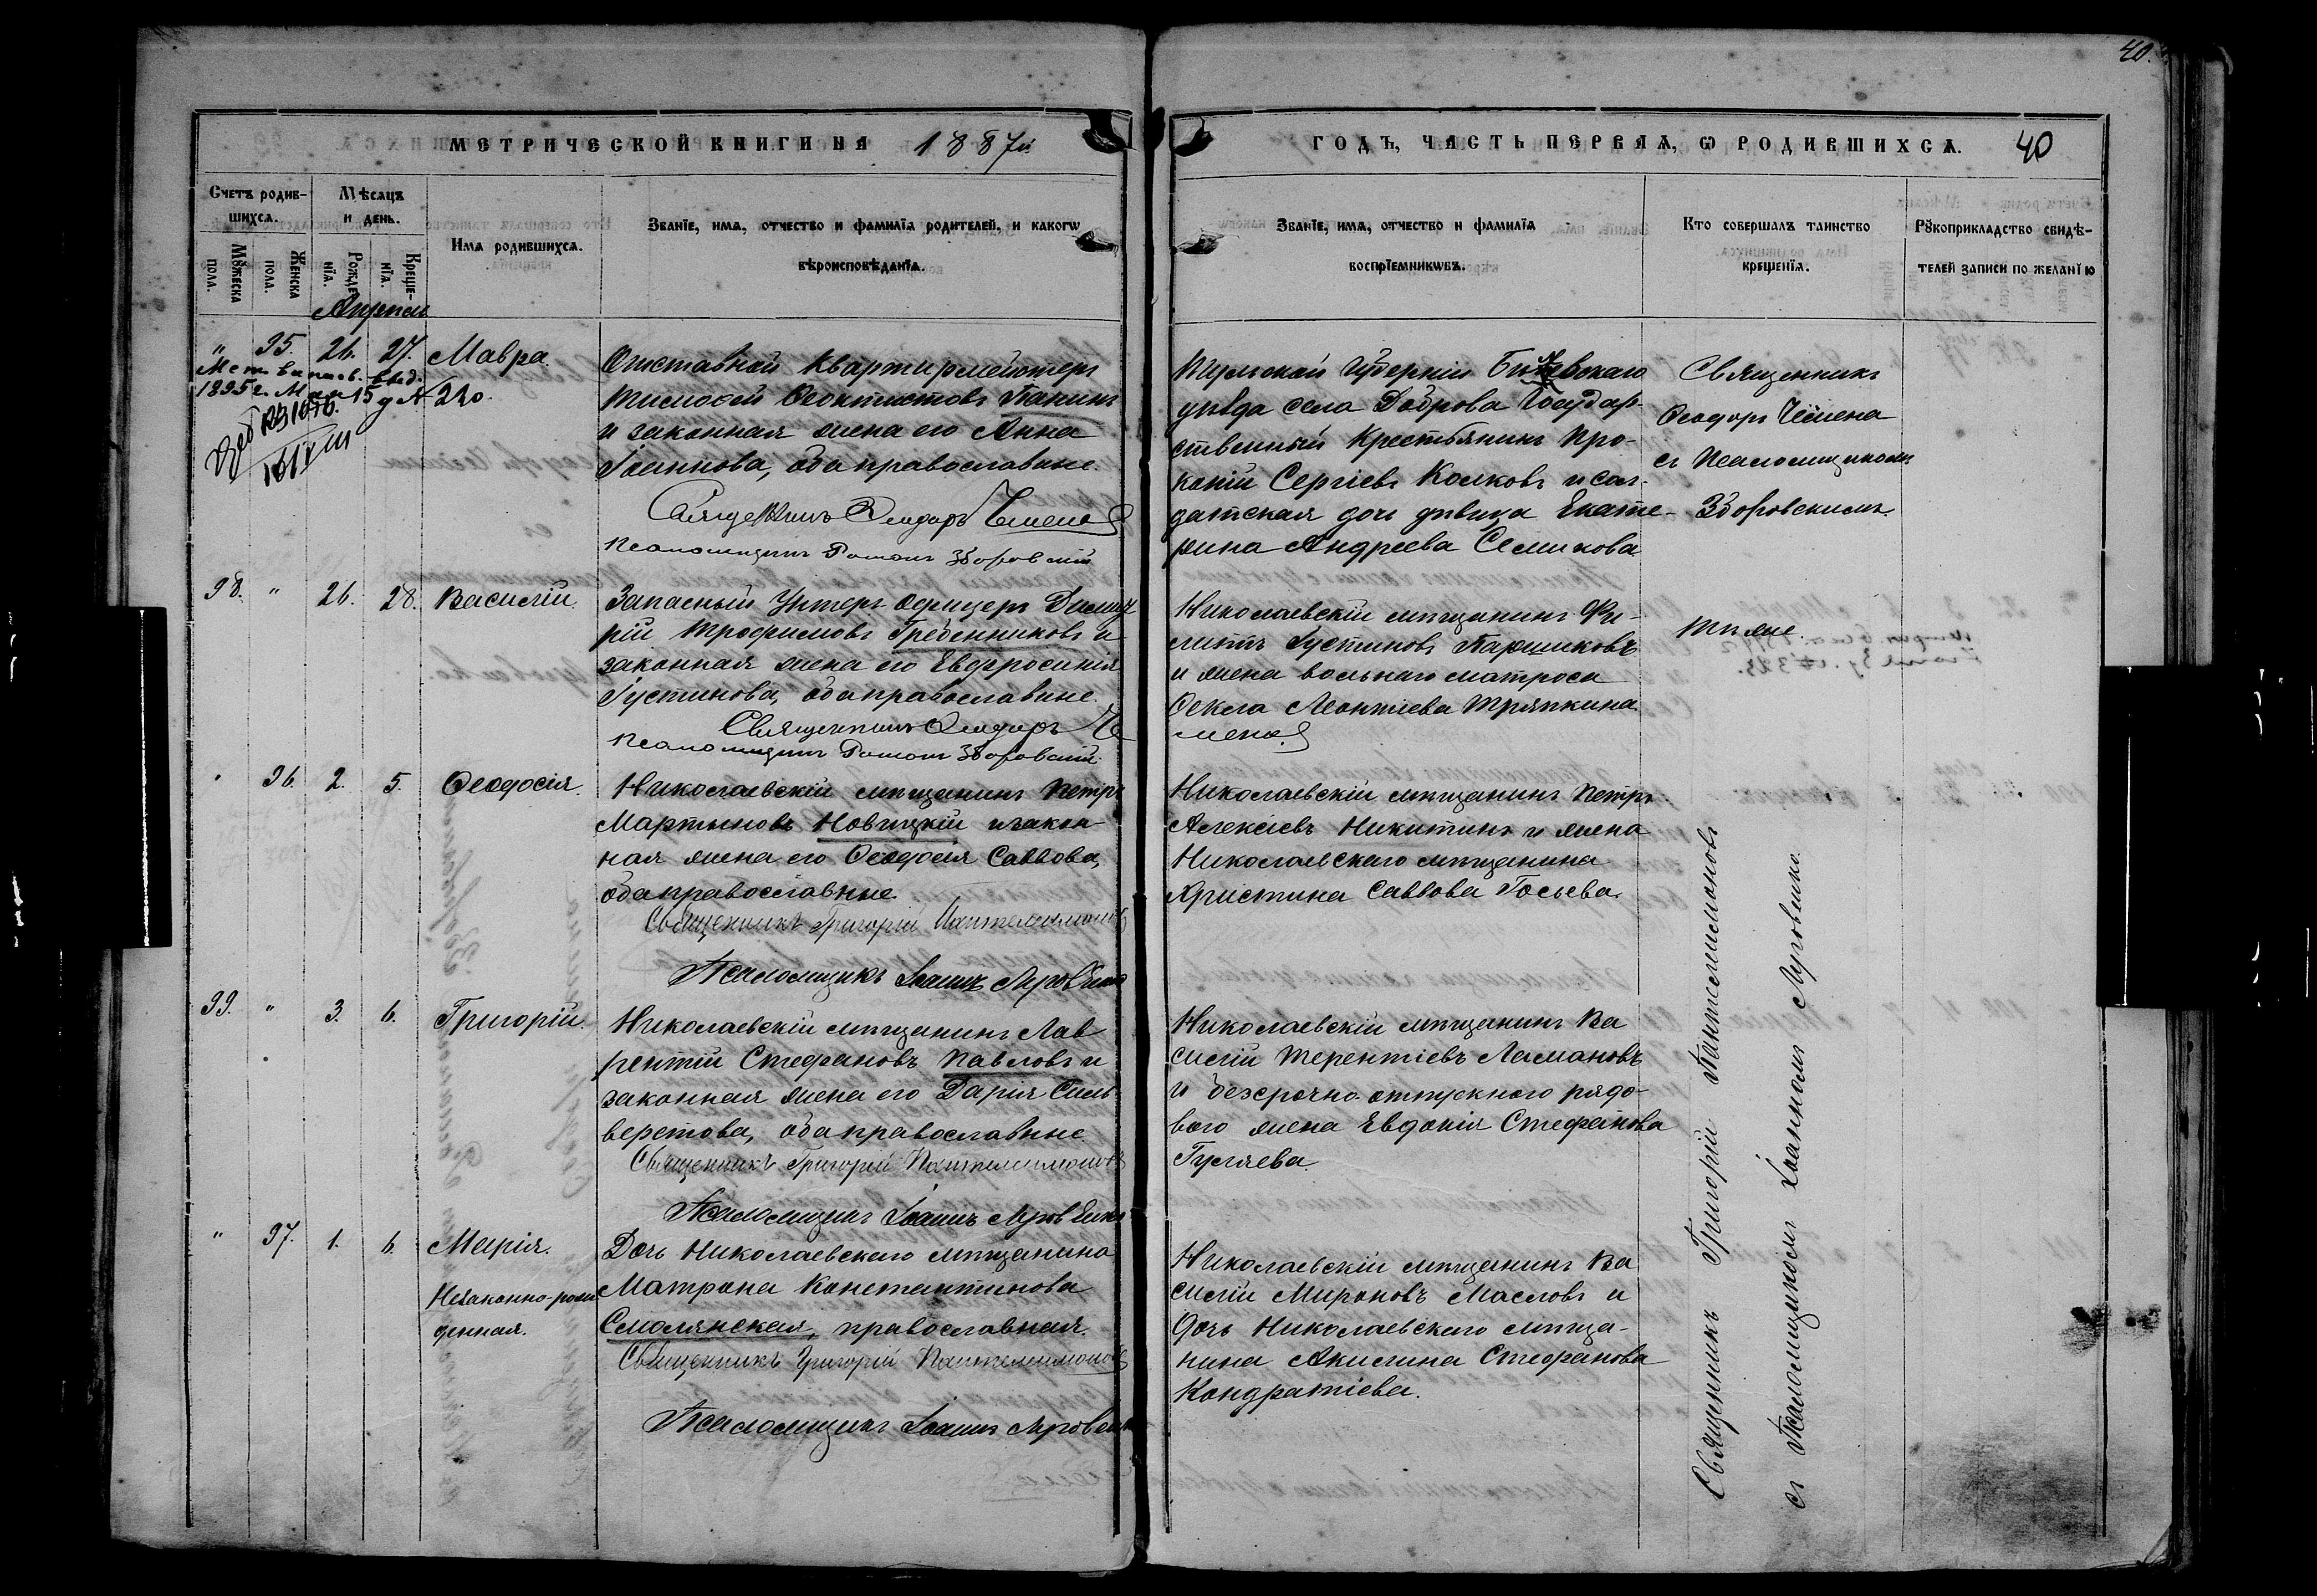 40.
МЕТРИЧЕСКОЙ КНИГИ НА 1887й
ГОДЪ, ЧАСТЬ ПЕРВАЯ, Ѡ РОДИВШИХСЯ. 40
Счетъ родив-
шихся.
Мѣсяцъ
и день.
Мꙋжеска
пола.
Женска
пола.
Рожде
нїя.
Креще-
нїя.
Имя родившихся.
Званїе, имя, отчество и фамилїя родителей, и какогѡ
вѣроисповѣданїя.
Званїе, имя, отчество и фамилїя
воспрїемникѡвъ.
Кто совершалъ таинство
крещенїя.
Рꙋкоприкладство свидѣ-
телей записи по желанїю
Апрель
" 95. 26. 27. Мавра.
1895 г. Мая 15 д № 220.
Отставной Квартирмейстеръ
Тимофей Ѳеоктистовъ Панинъ
и законная жена его Анна
Іоаннова, оба православные.
Священникъ Ѳеодоръ Чемена
Псаломщикъ Романъ Зборовскій
Тульской Губерніи
уѣзда села Доброва Государ-
ственный Крестьянинъ Про-
копій Сергіевъ Колковъ и сол-
датская дочь дѣвица Екате-
рина Андреева Семикова.
Священникъ
Ѳеодоръ Чемена
съ Псаломщикомъ
Зборовскимъ.
98. " 26. 28. Василій.
Запасный Унтеръ Офицеръ Димит
рій Трофимовъ Гребенниковъ и
законная жена его Евфросинія
Іустинова, оба православные.
Священникъ Ѳеодоръ Че
мена
Псаломщикъ Романъ Зборовскій.
Николаевскій мѣщанинъ Фи-
липпъ Іустиновъ Паршиковъ
и жена вольнаго матроса
Ѳекла Леонтіева Тряпкина.
Тѣ же.
" 96. 2. 5. Ѳеодосія.
Николаевскій мѣщанинъ Петръ
Мартыновъ Новицкій и закон-
ная жена его Ѳеодосія Саввова,
оба православные.
Священникъ Григорій Пантелеимоновъ
Псаломщикъ Іоаннъ Луговенко
Николаевскій мѣщанинъ Петръ
Алексіевъ Никитинъ и жена
Николаевскаго мѣщанина
Христина Саввова Госьева.
Священникъ Григорій Пантелеимоновъ
съ Псаломщикомъ Іоанномъ Луговенко.
99. " 3. 6. Григорій.
Николаевскій мѣщанинъ Лав
рентій Стефановъ Павловъ и
законная жена его Дарія Силь
верстова, оба православные.
Священникъ Григорій Пантелеимоновъ
Псаломщикъ Іоаннъ Луговенко
Николаевскій мѣщанинъ Ва
силій Терентіевъ Лимановъ
и безсрочно отпускного рядо-
вого жена Евдокія Стефанова
Гуляева.
" 97. 1. 6. Марія.
Незаконно-рож
денная.
Дочь Николаевскаго мѣщанина
Матрона Константинова
Смолянская, православная.
Священникъ Григорій Пантелеимоновъ
Псаломщикъ Іоаннъ Луговенко
Николаевскій мѣщанинъ Ва
силій Мироновъ Масловъ и
дочь Николаевскаго мѣща-
нина Акилина Стефанова
Кондратіева.